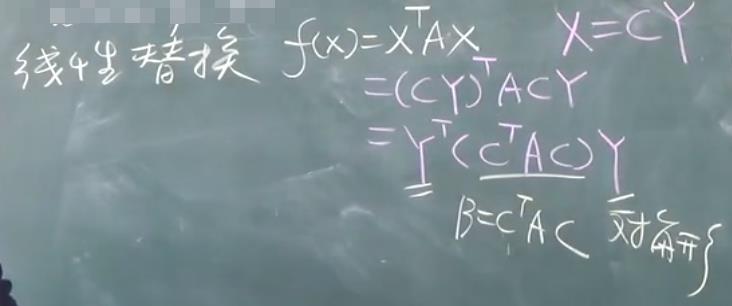 线性替换 f(x)=XᵀAX X=CY
=(CY)ᵀACY
=Yᵀ(CᵀAC)Y
B=CᵀAC 对角形